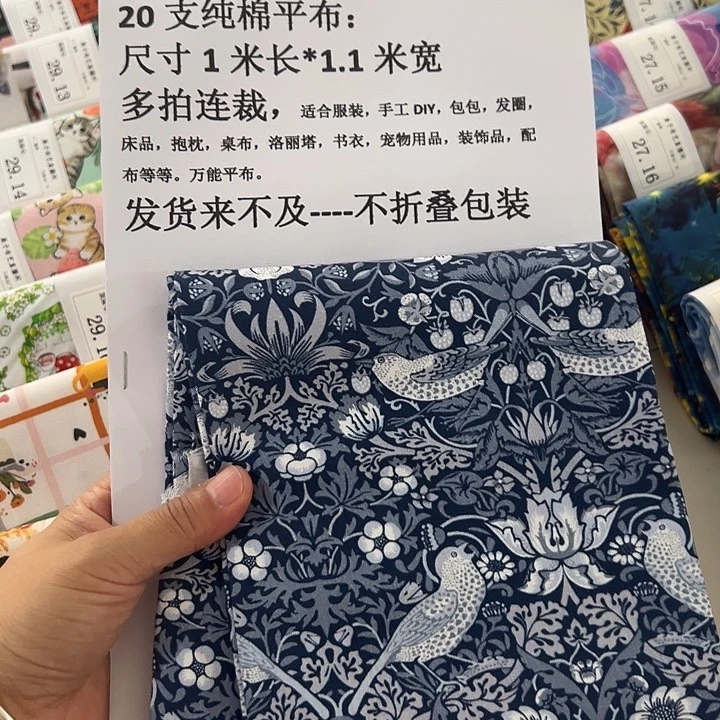 20 支纯棉平布：
尺寸 1 米长*1.1 米宽
多拍连裁，适合服装，手工 DIY，包包，发圈，
床品，抱枕，桌布，洛丽塔，书衣，宠物用品，装饰品，配
布等等。万能平布。
发货来不及----不折叠包装
29.13
29.14
27.15
27.16